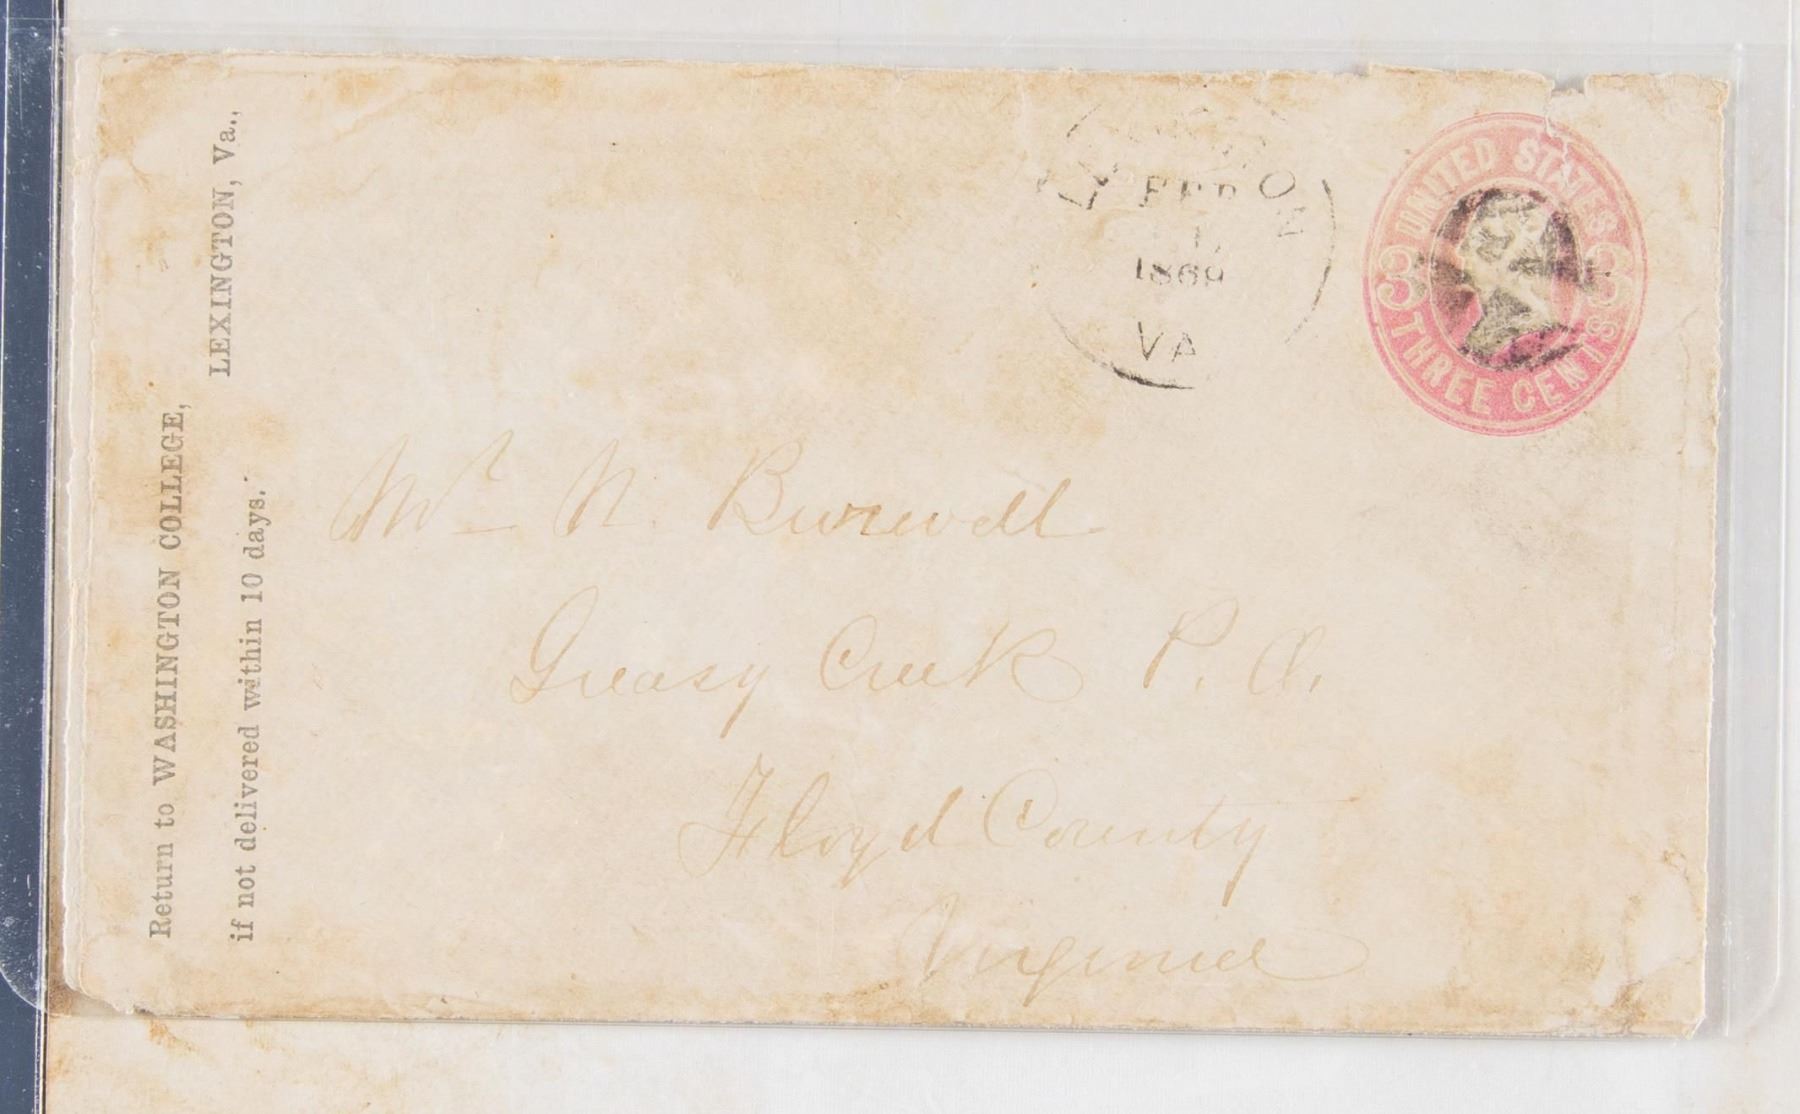 Return to WASHINGTON COLLEGE,
LEXINGTON, Va.,
if not delivered within 10 days.
LEXINGTON
FEB
1869
VA
UNITED STATES
3 3
THREE CENTS
Mr N. Burwell
Greasy Creek P. O.
Floyd County
Virginia